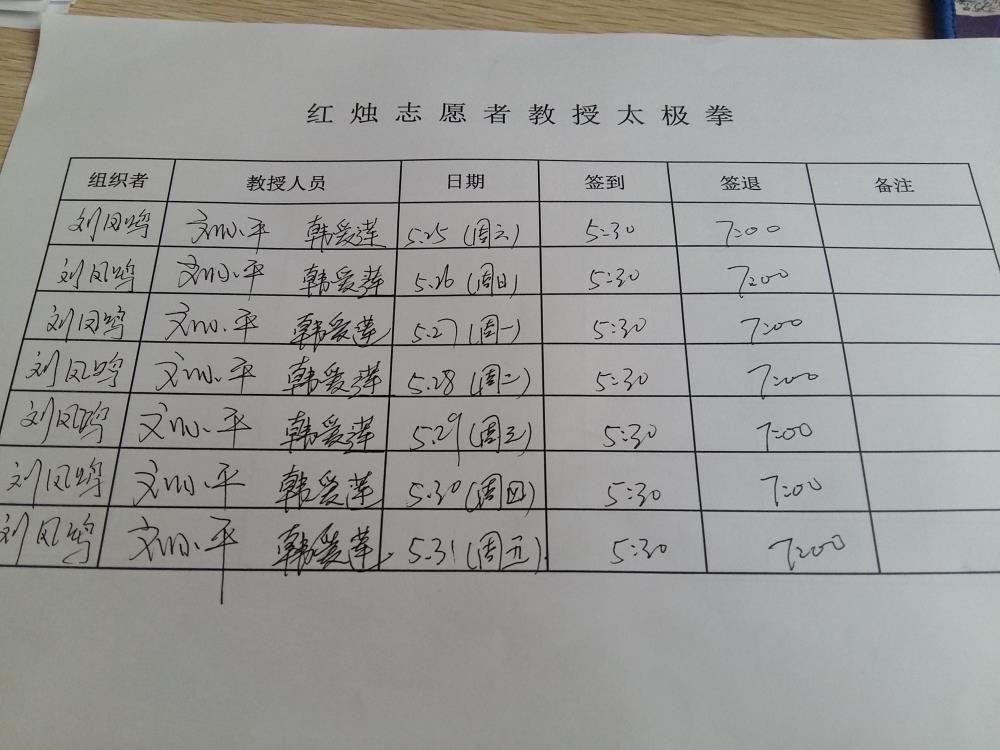 红烛志愿者教授太极拳
组织者 教授人员 日期 签到 签退 备注
刘凤鸣 小平 韩爱莲 5.25 (周六) 5:30 7:00
刘凤鸣 小平 韩爱莲 5.26 (周日) 5:30 7:00
刘凤鸣 小平 韩爱莲 5.27 (周一) 5:30 7:00
刘凤鸣 小平 韩爱莲 5.28 (周二) 5:30 7:00
刘凤鸣 小平 韩爱莲 5.29 (周三) 5:30 7:00
刘凤鸣 小平 韩爱莲 5.30 (周四) 5:30 7:00
刘凤鸣 小平 韩爱莲 5.31 (周五) 5:30 7:00